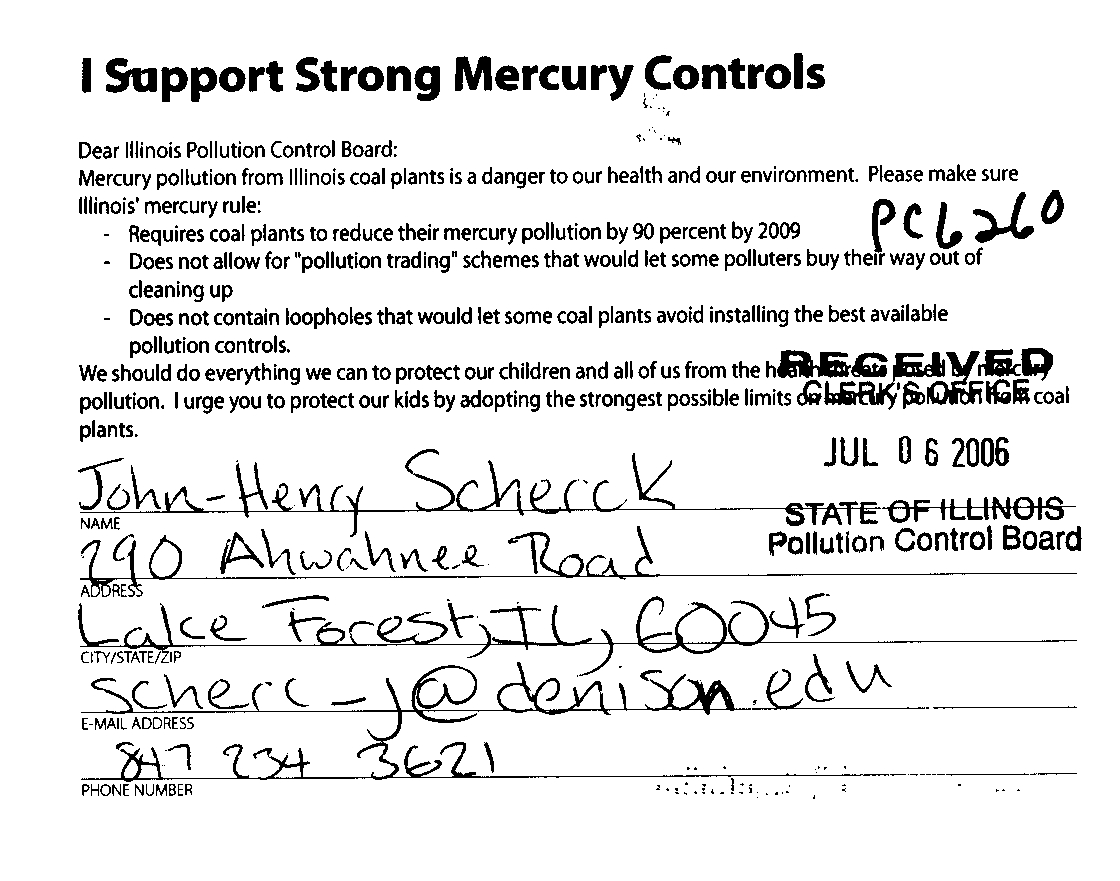 I Support Strong Mercury Controls
Dear Illinois Pollution Control Board:
Mercury pollution from Illinois coal plants is a danger to our health and our environment. Please make sure
Illinois' mercury rule:
- Requires coal plants to reduce their mercury pollution by 90 percent by 2009
PC6260
- Does not allow for "pollution trading" schemes that would let some polluters buy their way out of
cleaning up
- Does not contain loopholes that would let some coal plants avoid installing the best available
pollution controls.
We should do everything we can to protect our children and all of us from the health threats posed by mercury
RECEIVED
CLERK'S OFFICE
pollution. I urge you to protect our kids by adopting the strongest possible limits on mercury pollution from coal
plants.
JUL 06 2006
John-Henry Scherck
STATE OF ILLINOIS
NAME
Pollution Control Board
290 Ahwahnee Road
ADDRESS
Lake Forest, IL, 60045
CITY/STATE/ZIP
scherc_j@denison.edu
E-MAIL ADDRESS
847 234 3621
PHONE NUMBER